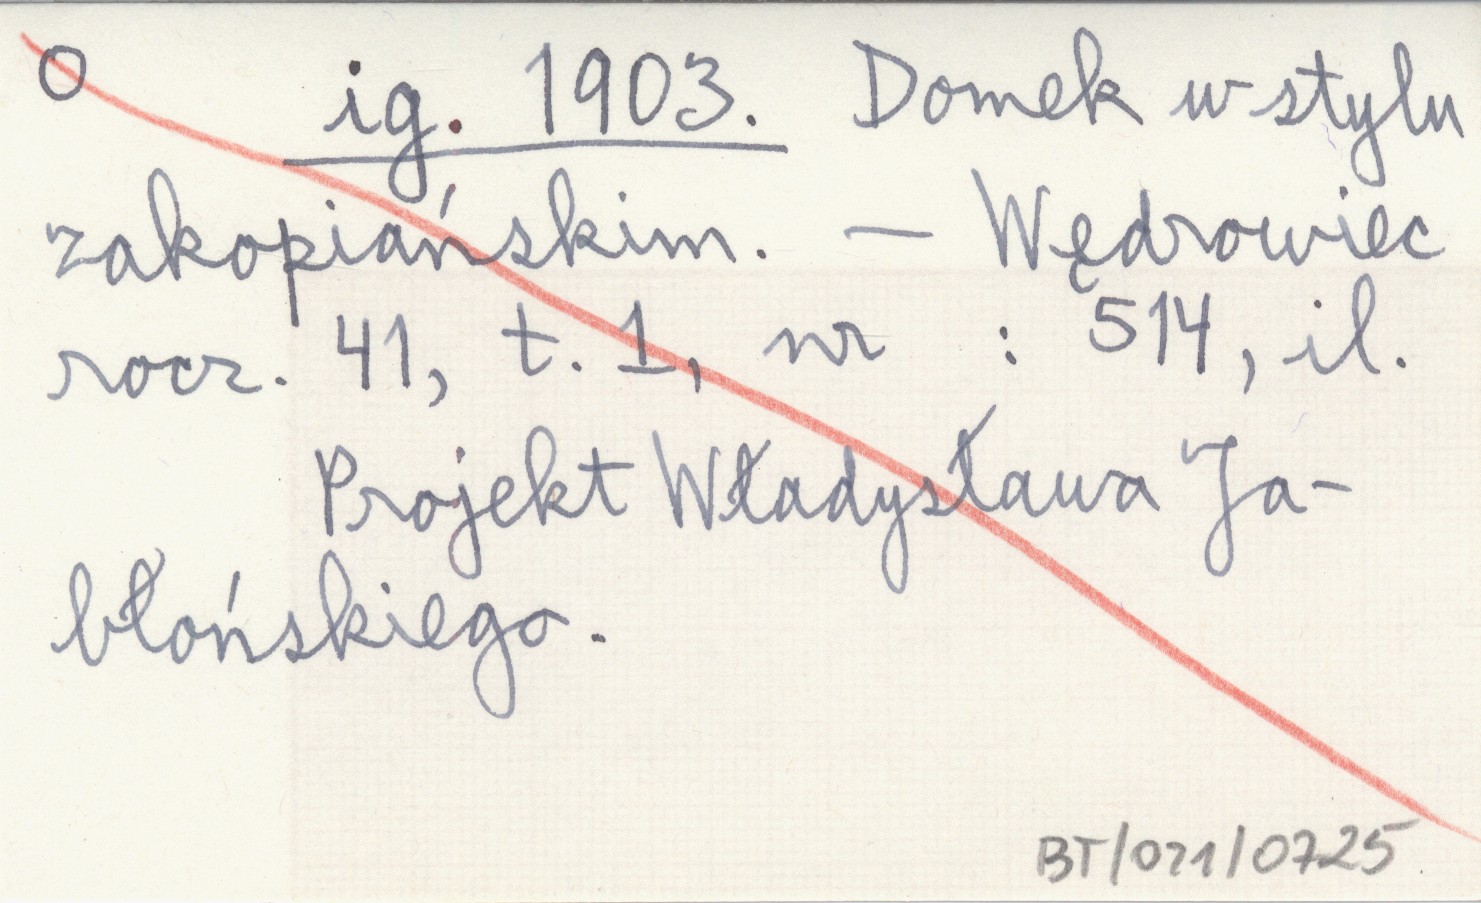 O ig. 1903. Domek w stylu
zakopiańskim. — Wędrowiec
rocz. 41, t. 1, nr : 514, il.
Projekt Władysława Ja-
błońskiego.
BT/021/0725